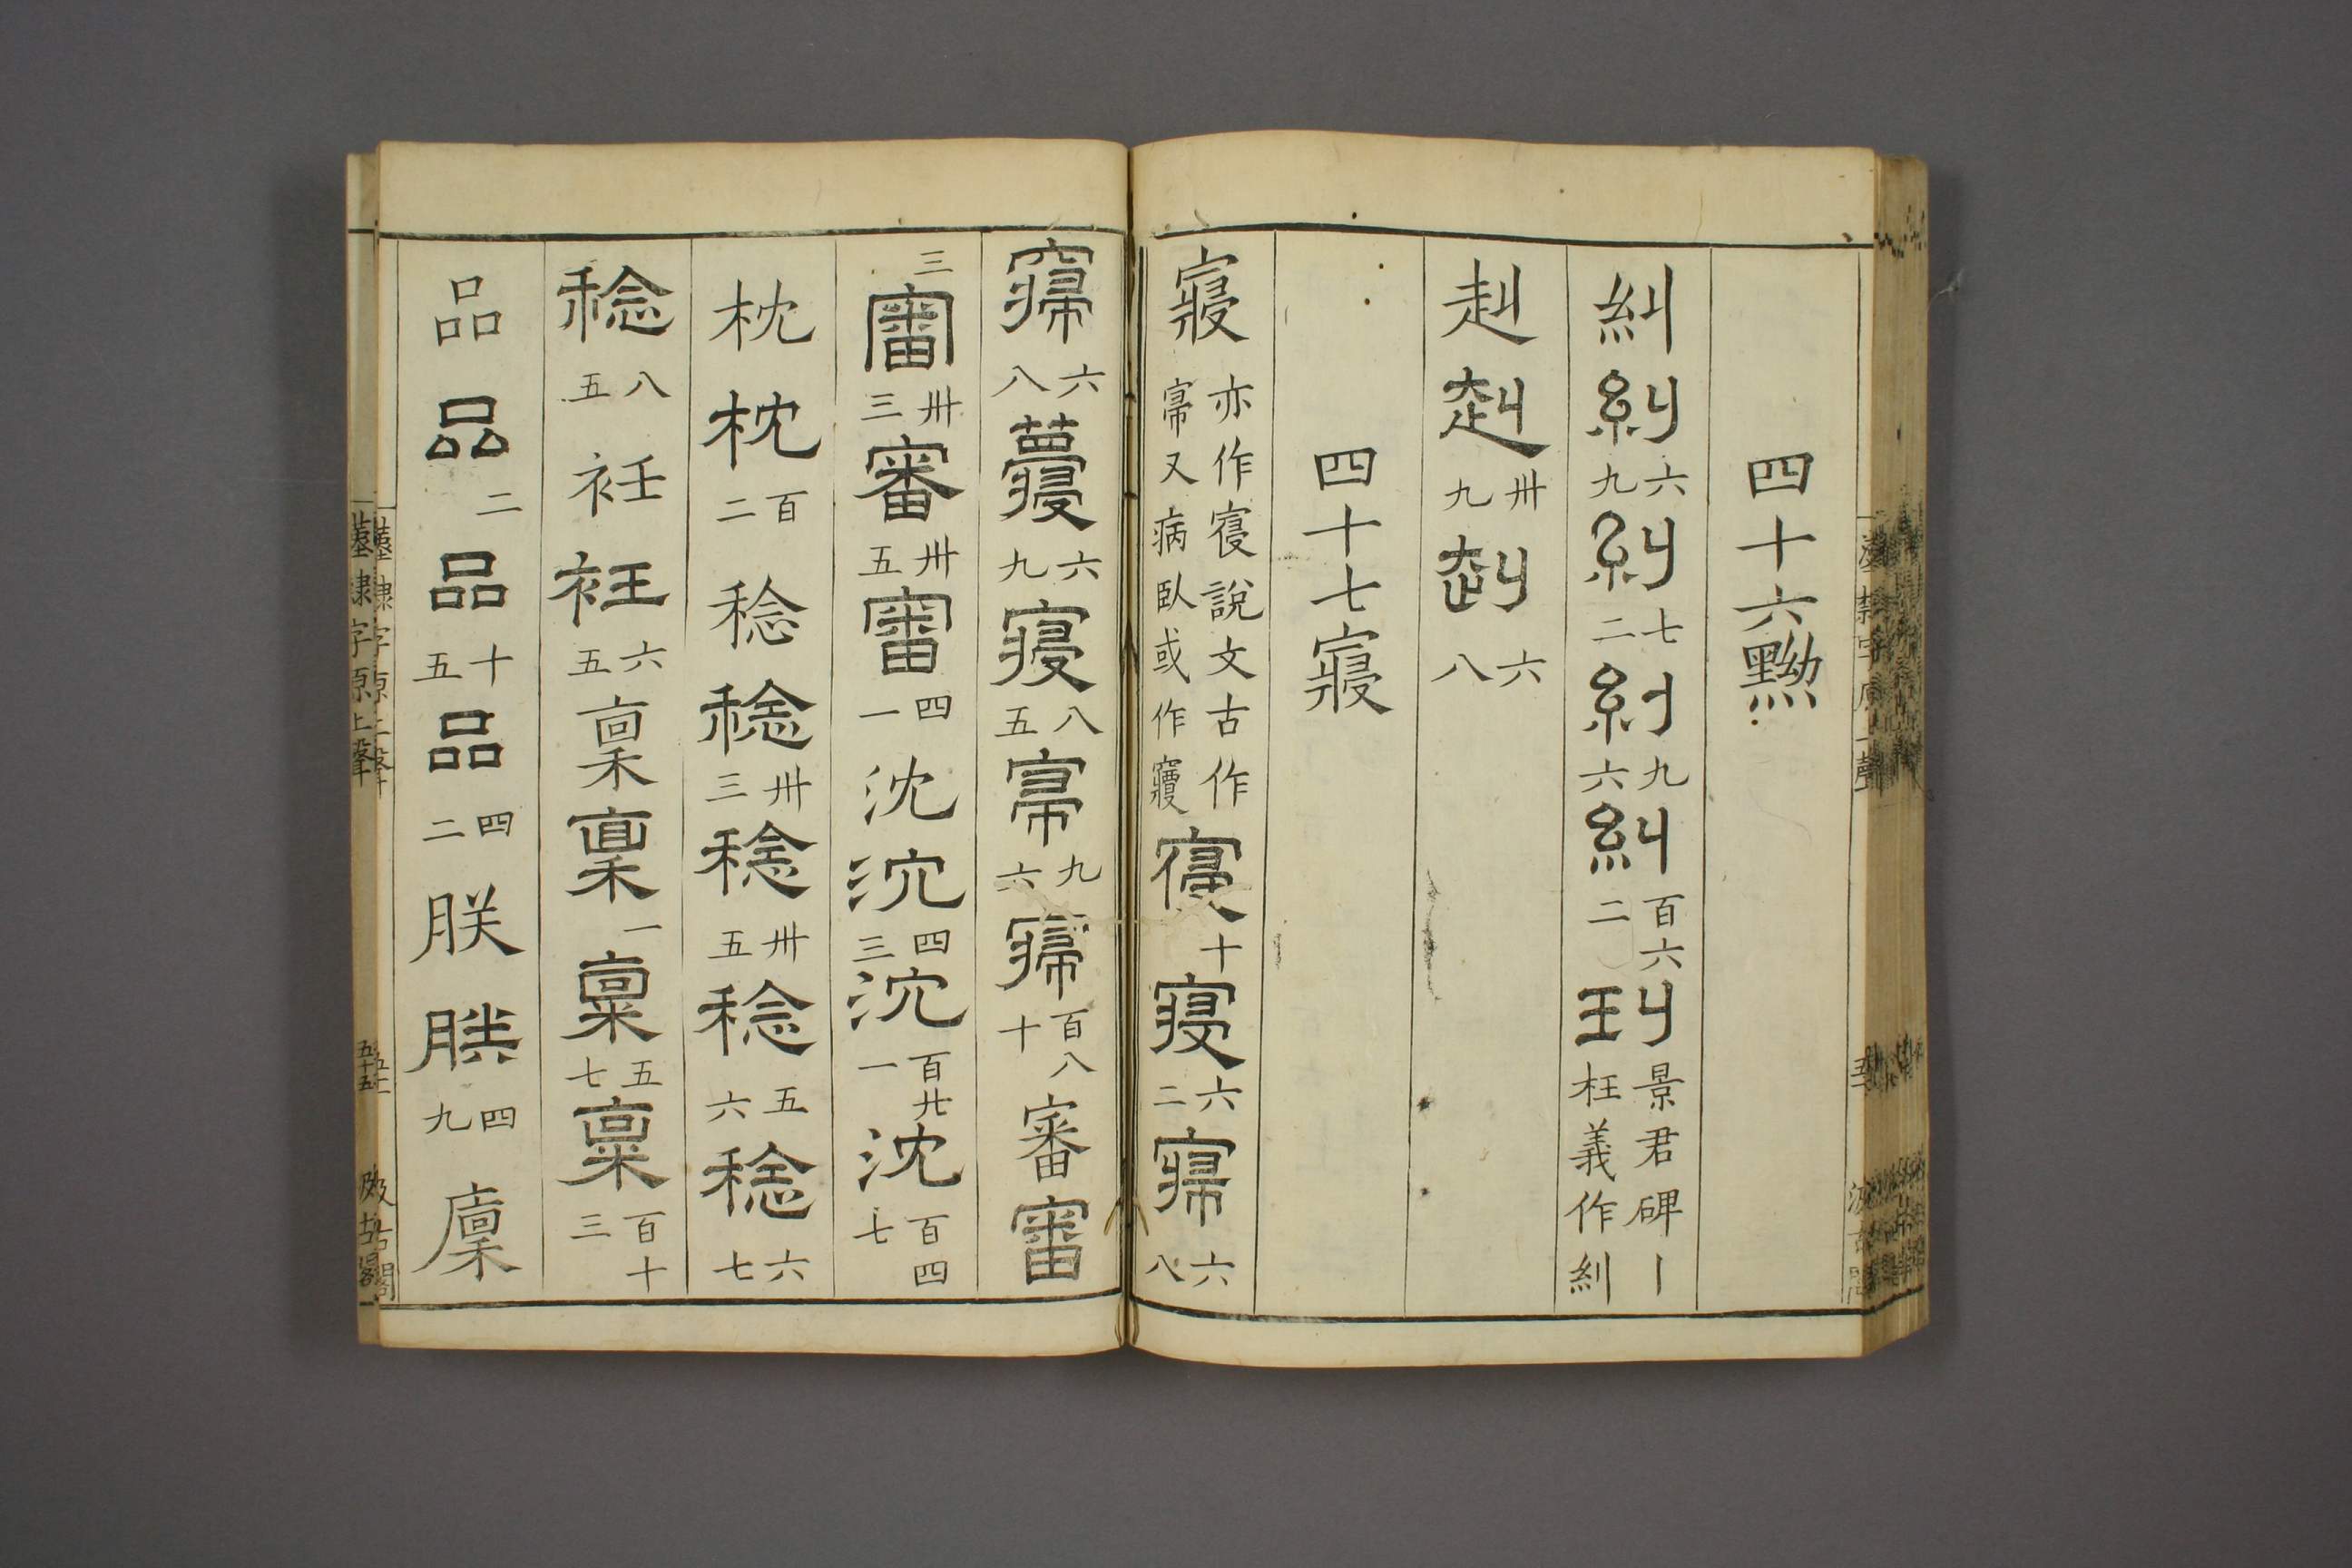 四十六黝
糾糾六九糾七二糾九六糾百六二糾景君碑丨枉義作糾
赳赳卅九赳六八
四十七寑
寑亦作寑說文古作𡪢又病臥或作寑十寑六二寑六八
寑六八寑六九寑八五寑九六寑百八十審審
三審卅三審卅五審四一沈沈四三沈百廿一沈百四七
枕枕百二稔稔卅三稔卅五稔五六稔六七
稔八五衽衽六五稟稟一稟五七稟百十三
品品二品十五品四二朕朕四九廩
漢隸字原上聲
五十五
汲古閣